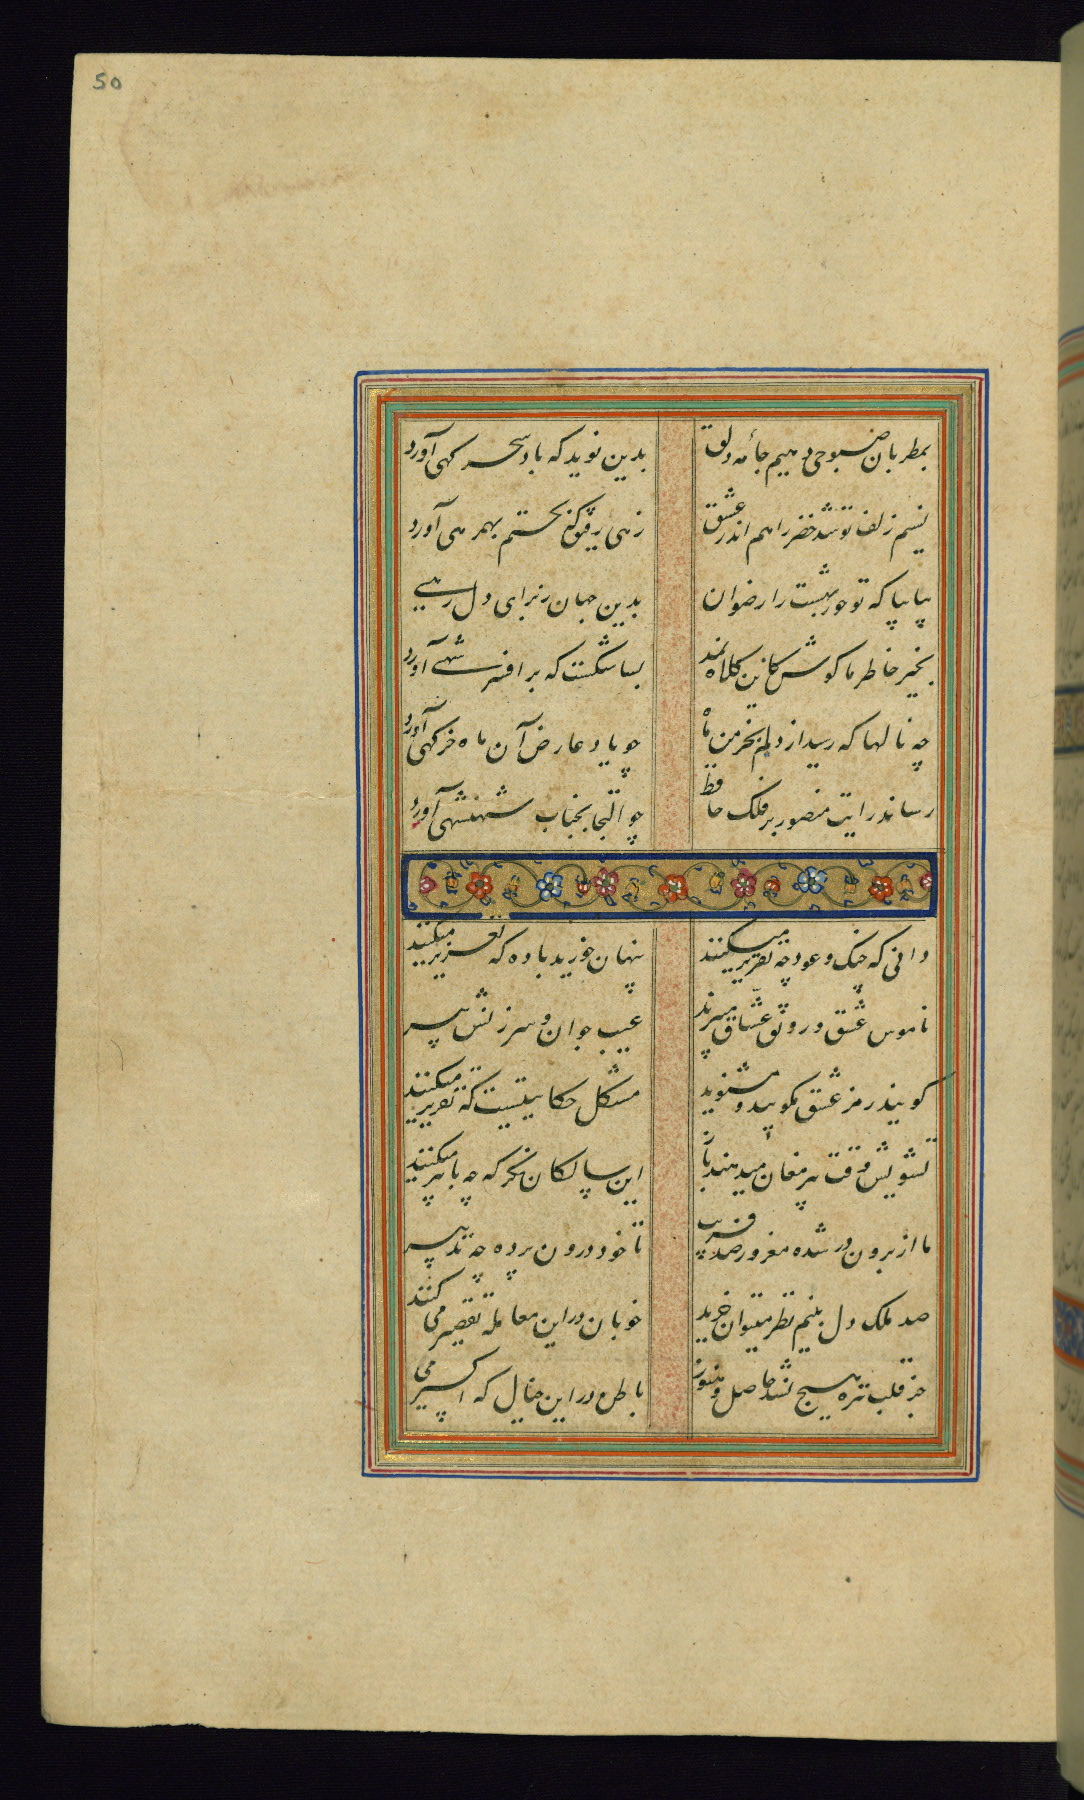 50
بمطربان صبوحی دهیم جامه دلق
بدین نوید که باد سحر کهی آورد
نسیم زلف تو شد خضر راهم اندر عشق
زهی رفیق که بختم بهمرهی آورد
بیا بیا که تو حور بهشت را رضوان
بدین جهان ز برای دل رهی
بخیر خاطر ما کوش کاین کلاه نمد
بسا شکست که بر افسر شهی آورد
چه نالها که رسید از دلم بخرمن ماه
چو یاد عارض آن ماه خرکهی آورد
رساند رایت منصور بر فلک حافظ
چو التجا بجناب شهنشهی آورد
دانی که چنک و عود چه تقریر میکنند
پنهان خورید باده که تعزیر میکنند
ناموس عشق و رونق عشاق میبرند
عیب جوان و سرزنش پیر
کویند رمز عشق مکویید و مشنوید
مشکل حکایتیست که تقریر میکنند
تشویش وقت پیر مغان میدهند باز
این سالکان نکر که چه با پیر میکنند
ما از برون در شده مغرور صد فریب
تا خود درون پرده چه تدبیر
صد ملک دل بنیم نظر میتوان خرید
خوبان در این معامله تقصیر می کنند
جز قلب تیره هیچ نشد حاصل و هنوز
باطل در این خیال که اکسیر می